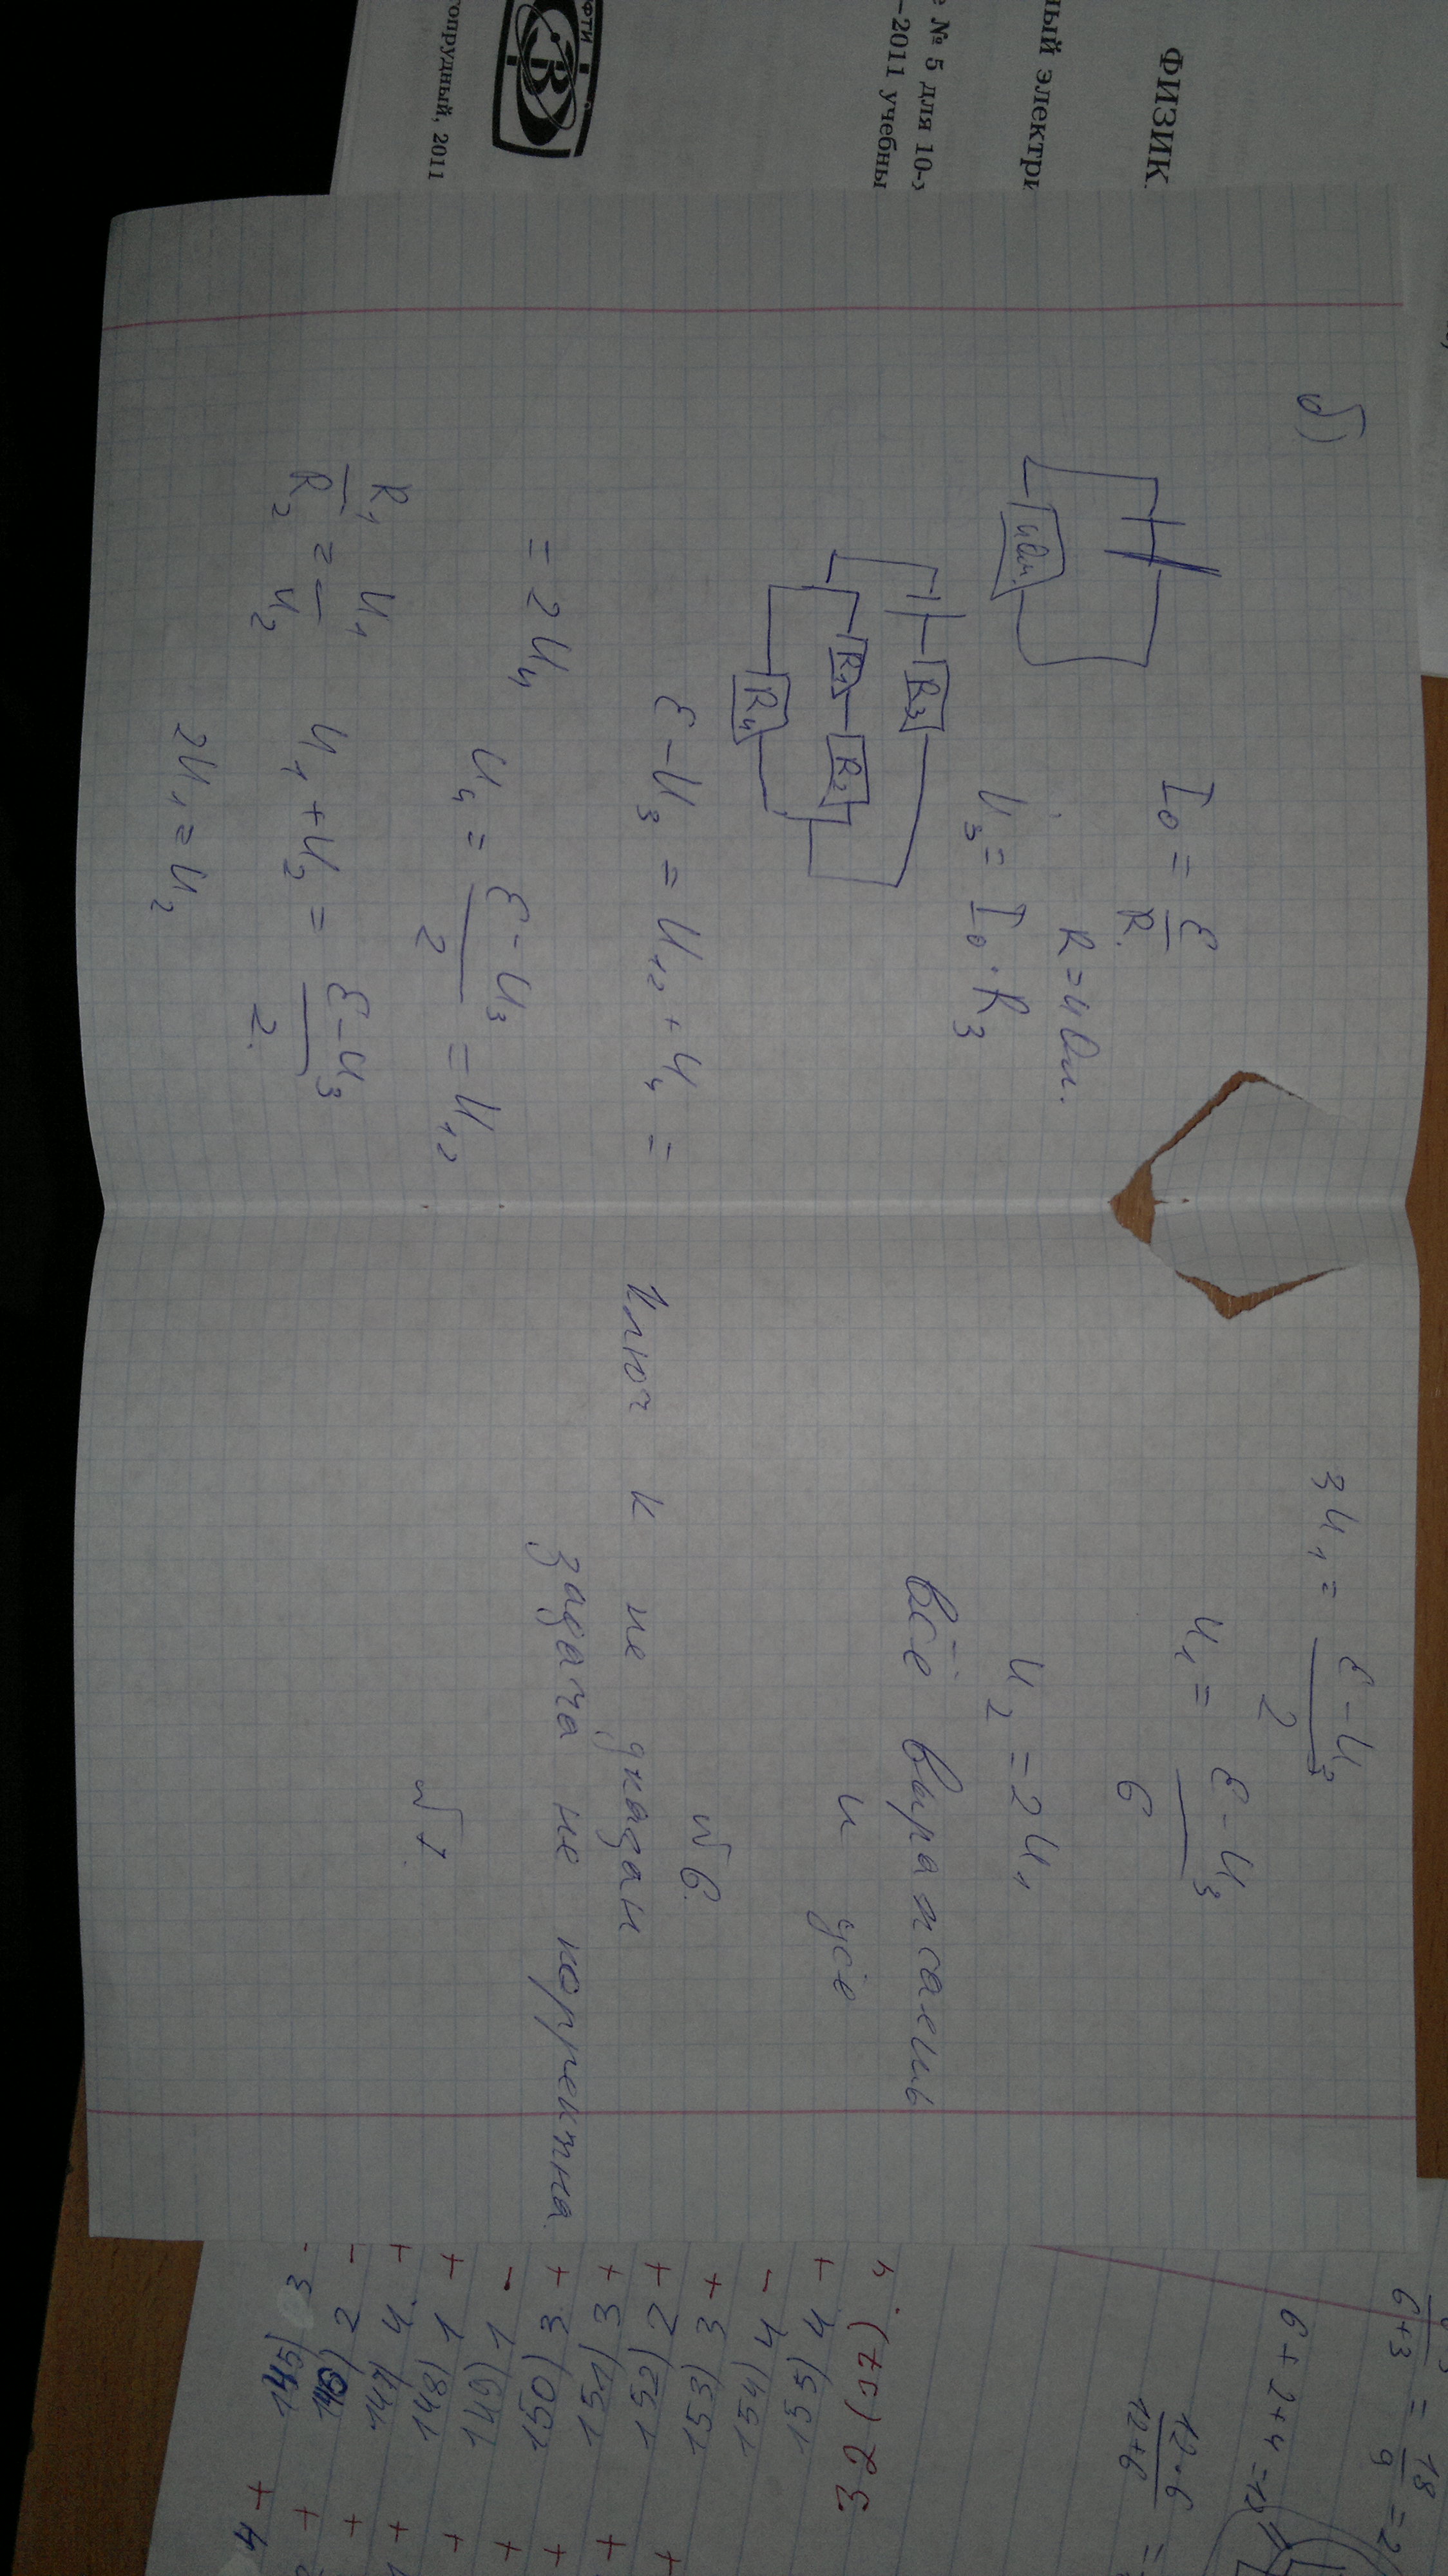 ФИЗИК
ный электри
е № 5 для 10-х
–2011 учебны
ФТИ
опрудный, 2011
б)
I₀ = ε/R
R = 4 Ом.
4 Ом.
U₃ = I₀ · R₃
R₃
R₁
R₂
R₄
ε – U₃ = U₁₂ + U₄ =
= 2 U₄
U₄ = (ε – U₃)/2 = U₁₂
R₁/R₂ = U₁/U₂
U₁ + U₂ = (ε – U₃)/2
2U₁ = U₂
3U₁ = (ε – U₃)/2
U₁ = (ε – U₃)/6
U₂ = 2U₁
всё выражаешь
и усё
№ 6.
Ключ к не указан
задача не корректна.
6+3 = 18/9 = 2
6 + 2 + 4 = 12
12·6
12+6 =
32 (37).
155) 4 +
154) 4 –
153) 3 +
152) 2 +
151) 3 +
150) 3 +
149) 1 –
148) 1 +
147) 4 +
146) 2 –
145) 3 –
4 +